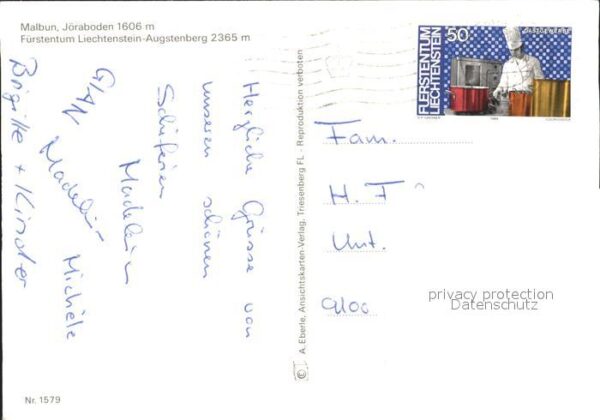 Malbun, Jöraboden 1606 m
Fürstentum Liechtenstein-Augstenberg 2365 m
Herzliche Grüsse von
unseren schönen
Skiferien
Madelein
Michèle
Brigitte + Kinder
Nr. 1579
© A. Eberle, Ansichtskarten-Verlag, Triesenberg FL - Reproduktion verboten
FÜRSTENTUM
LIECHTENSTEIN
50
GASTGEWERBE
Fam.
H. F
Unt.
9100
privacy protection
Datenschutz